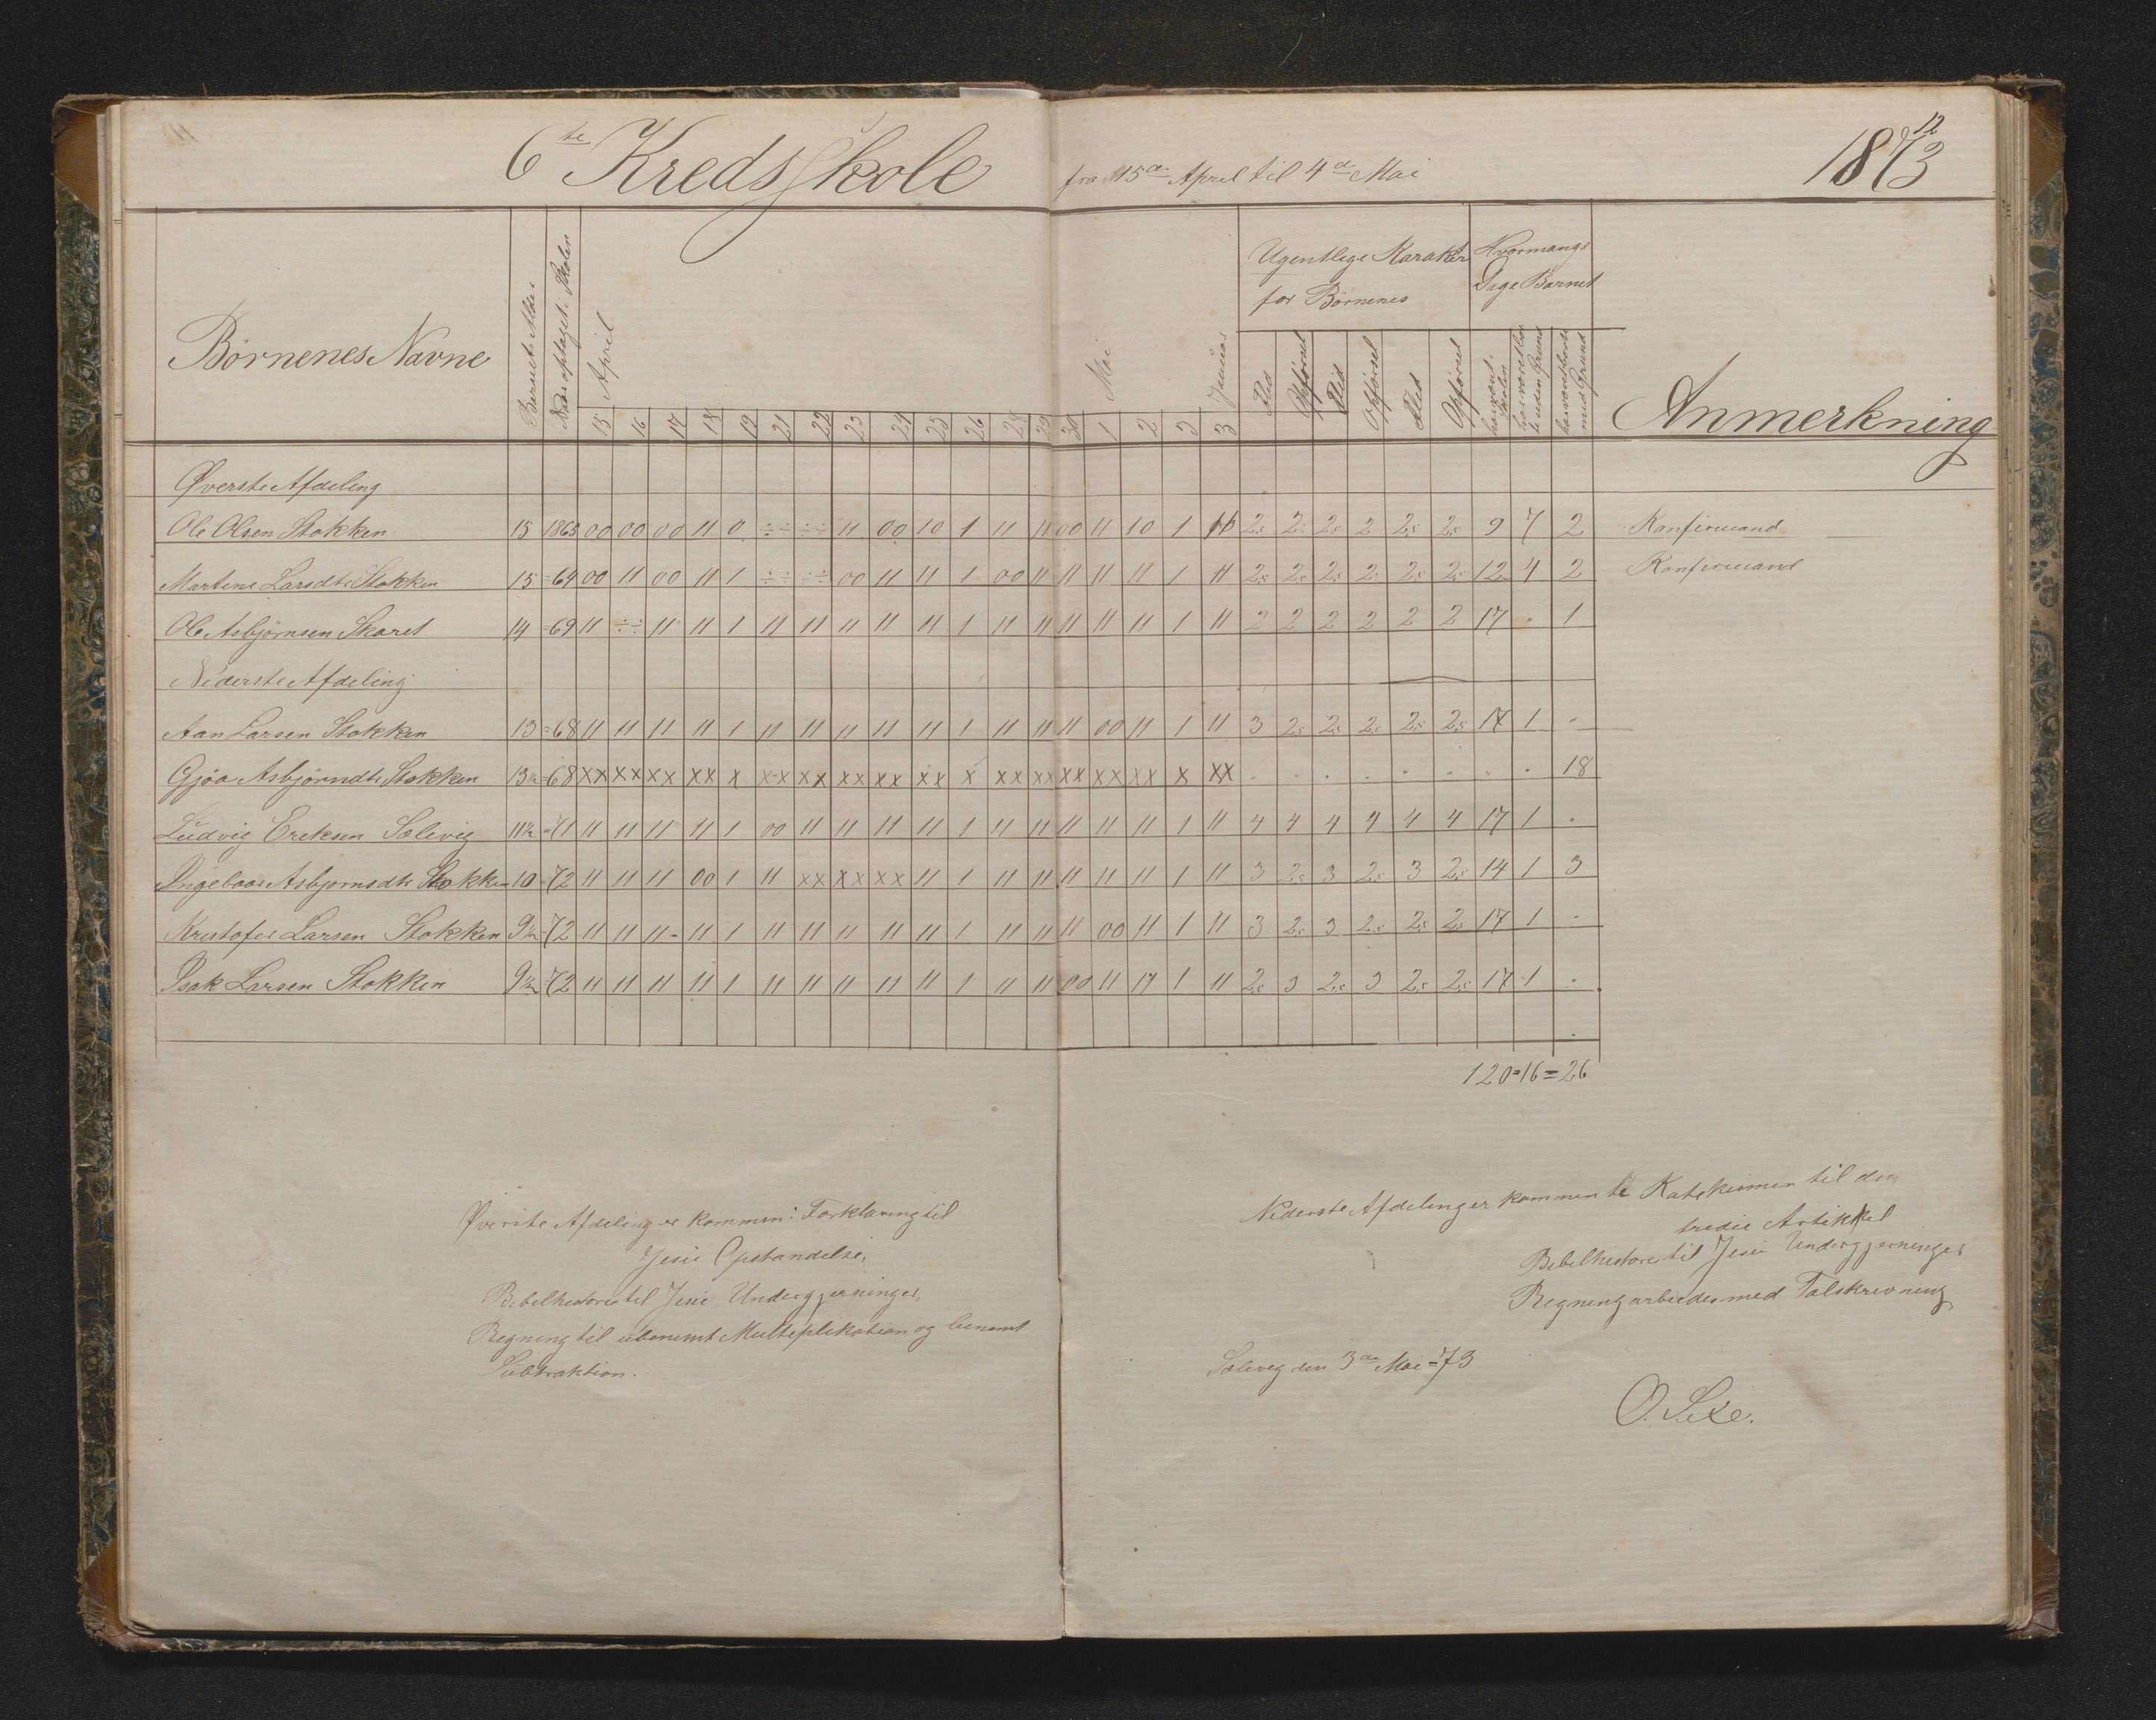 6te Kredsskole fra 15de April til 4de Mai 1873
12
Børnenes Navne Barnets Alder Naar optaget i Skolen April Mai Januar
Ugentlige Karakter for Børnenes
Hvormange Dage Barnet
Flid Opførsel Flid Opførsel Flid Opførsel
har været i Skolen
har været borte uden Grund
har været borte med Grund
Anmerkning
15 16 17 18 19 21 22 23 24 25 26 28 29 30 1 2 3 3
Øverste Afdeling
Ole Olsen Stokken 15 1865 00 00 00 11 0 ÷÷ ÷÷ 11 00 10 1 11 11 00 11 10 1 11 2,5 2,5 2,5 2 2,5 2,5 9 7 2 Konfirmand
Martine Larsdtr Stokken 15 =64 00 11 00 11 1 ÷÷ ÷÷ 00 11 11 1 00 11 11 11 11 1 11 2,5 2,5 2,5 2,5 2,5 2,5 12 4 2 Konfirmand
Ole Asbjørnsen Skaret 14 =69 11 ÷÷ 11 11 1 11 11 11 11 11 1 11 11 11 11 11 1 11 2 2 2 2 2 2 17 " 1
Nederste Afdeling
Aan Larsen Stokken 13 =68 11 11 11 11 1 11 11 11 11 11 1 11 11 11 00 11 1 11 3 2,5 2,5 2,5 2,5 2,5 17 1 "
Gjøa Asbjørndtr Stokken 13½ =68 xx xx xx xx x xx xx xx xx xx x xx xx xx xx xx x xx " " " " " " " " 18
Ludvig Eriksen Solevig 11½ =71 11 11 11 11 1 00 11 11 11 11 1 11 11 11 11 11 1 11 4 4 4 4 4 4 17 1 "
Ingeboor Asbjornsdtr Stokken 10 =72 11 11 11 00 1 11 xx xx xx 11 1 11 11 11 11 11 1 11 3 2,5 3 2,5 3 2,5 14 1 3
Kristofer Larsen Stokken 9½ =72 11 11 11 11 1 11 11 11 11 11 1 11 11 11 00 11 1 11 3 2,5 3 2,5 2,5 2,5 17 1 "
Isak Larsen Stokken 9½ =72 11 11 11 11 1 11 11 11 11 11 1 11 11 00 11 11 1 11 2,5 3 2,5 3 2,5 2,5 17 1 "
120=16=26
Øverste Afdeling er kommen i Forklaring til
Jesu Opstandelse,
Bibelhistorie til Jesu Undergjerninger,
Regning til ubenemt Multiplikation og benemt
Subtraktion.
Nederste Afdeling er kommen te Katekismen til den
tredie Artikkel
Bibelhistorie til Jesu Undergjerninger
Regning arbeides med Talskrivning
Solevig den 3de Mai =73
O. Sexe.